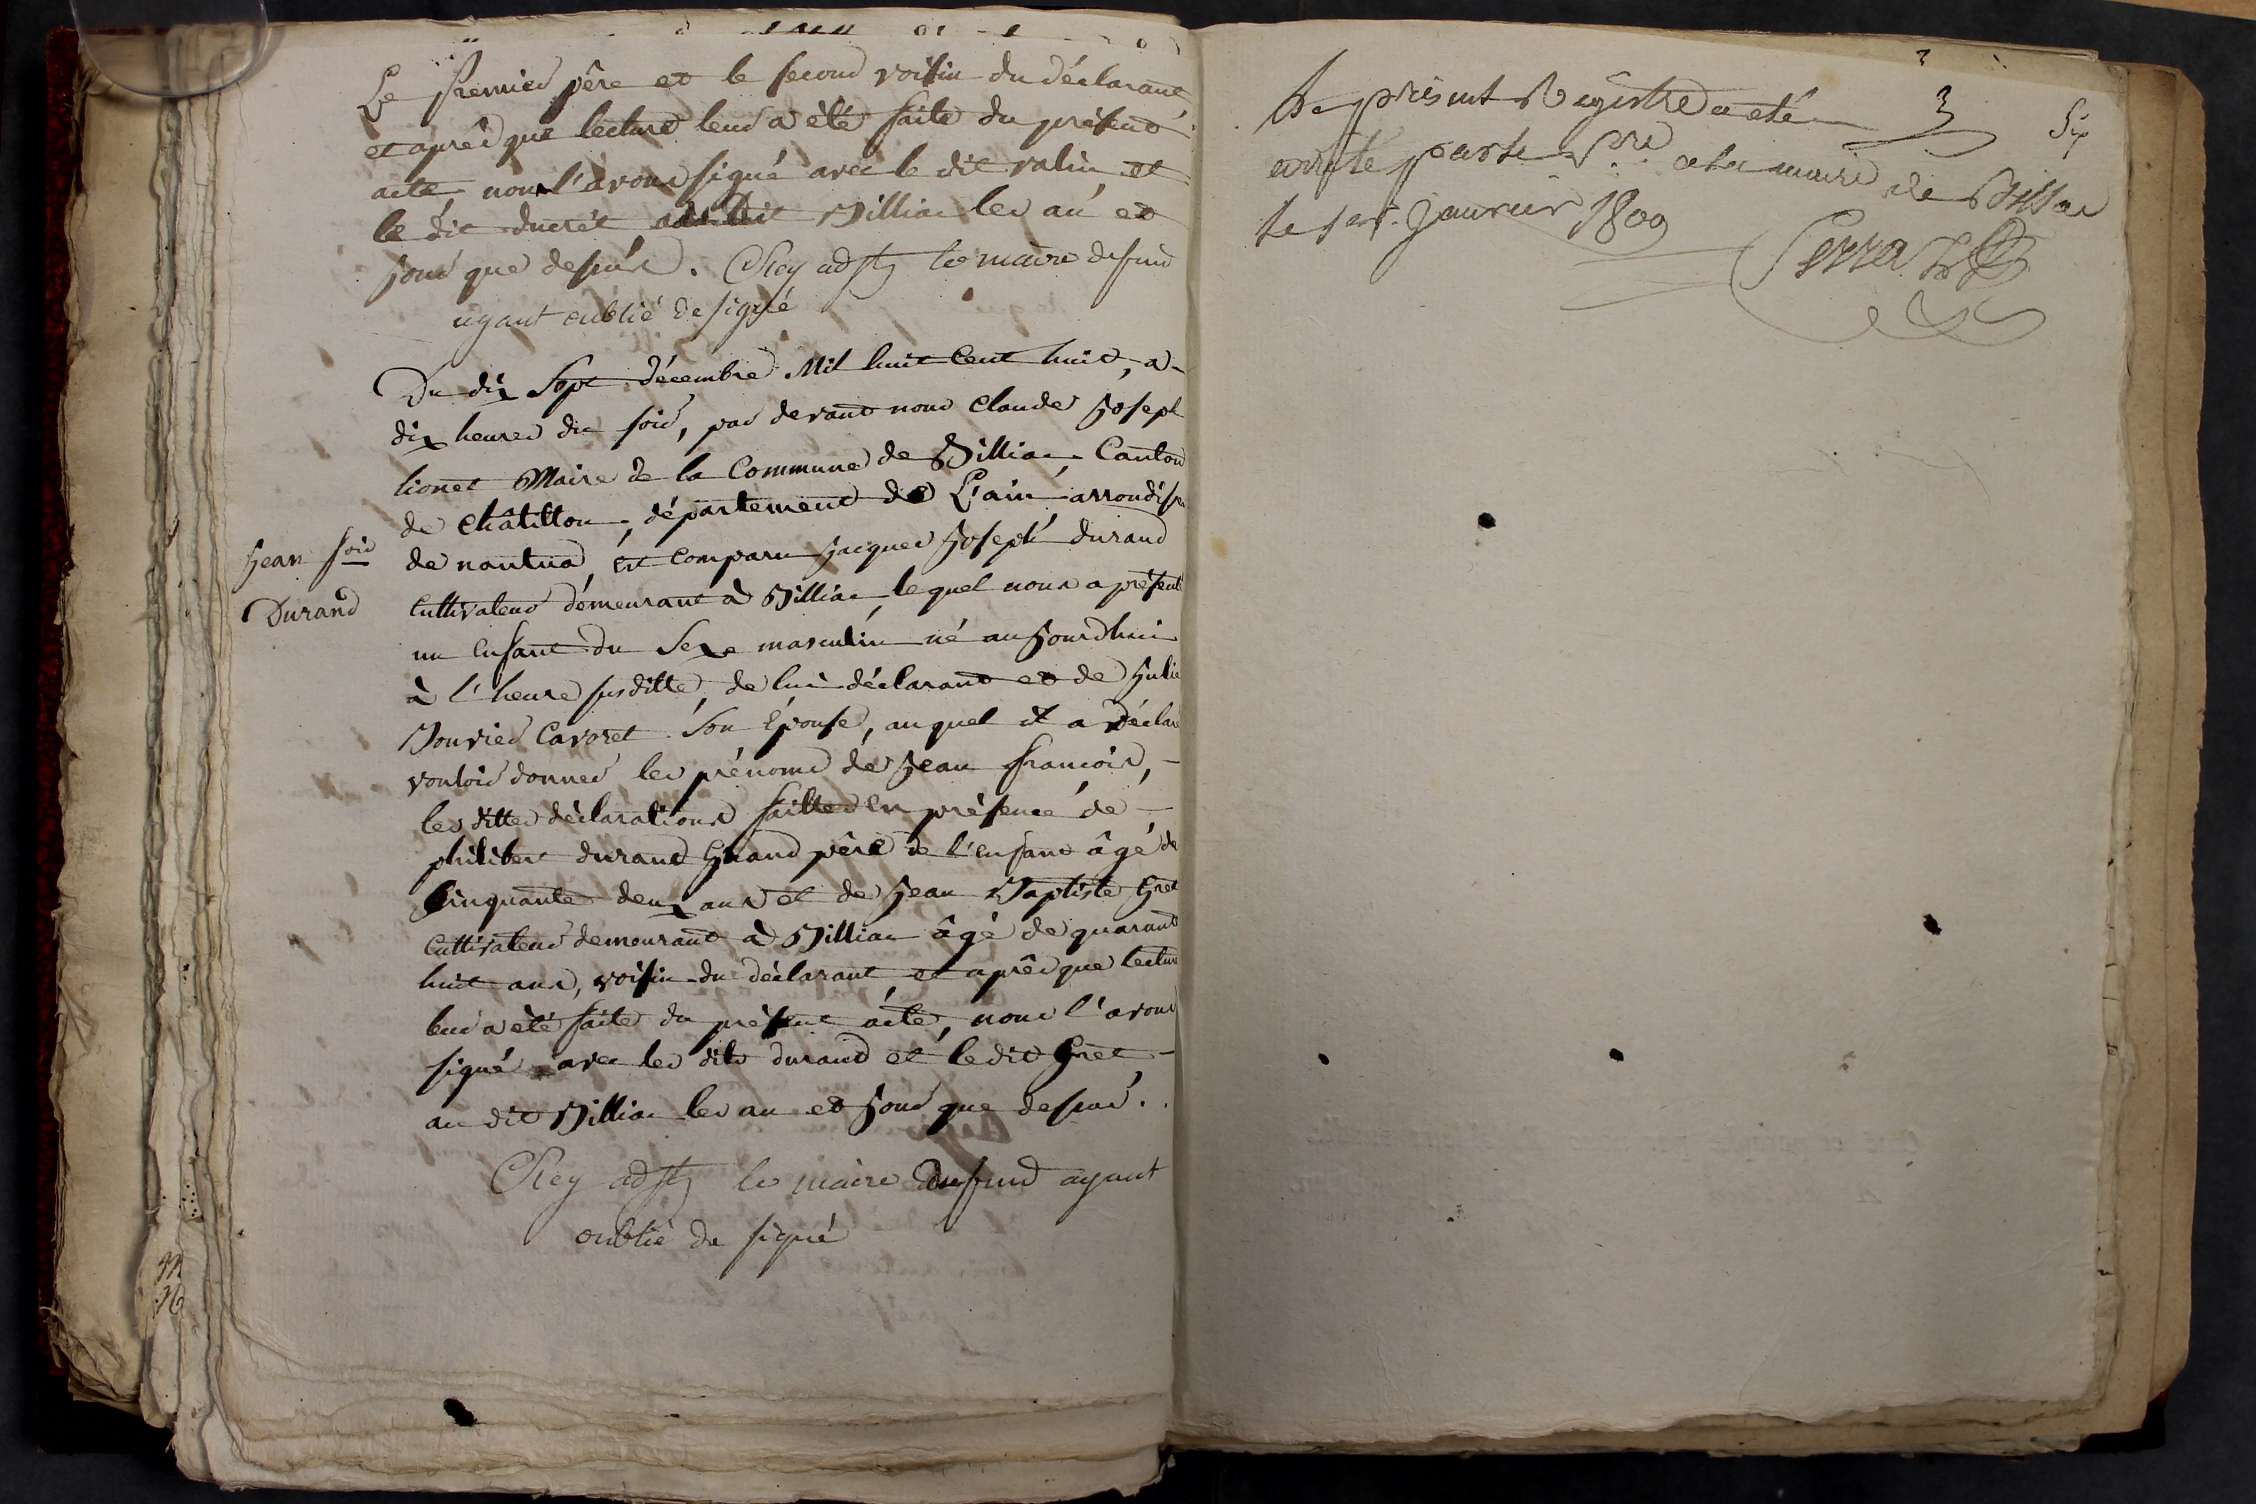 Le premier père et le second voisin du déclarant,
et après que lecture leur a été faite du présent
acte, nous l'avons signé avec le dit valin et
le dit ducrêt, au dit Billiac les an et
jour que dessus. CRey adjt le maire defunt
ayant oublié de signé
Du dix Sept décembre Mil huit Cent huit, a
dix heures du soir, par devant nous Claude Joseph
lionet Maire de la Commune de Billiac Canton
de Châtillon, département de L'ain, arrondisse
de nantua, est comparu jacques Joseph durand
Jean fois
Durand
Cultivateur demeurant à Billiac, lequel nous a présenté
un Enfant du Sexe masculin né aujourdhui
à l'heure susditte, de lui déclarant et de Julie
Bouvier Cavoret Son Epouse, auquel il a déclaré
vouloir donner les prénoms de Jean francois,
les dittes déclarations faittes En présence de
philibert durand Grand père de l'enfant âgé de
Cinquante deux ans et de Jean Baptiste Gret
Cultivateur demeurant à Billiac âgé de quarante
huit ans, voisin du déclarant, et après que lecture
leur a été faite du présent acte, nous l'avons
signé avec les dits durand et le dit Gret
au dit Billiac les an et jour que dessus.
CRey adjt le maire defunt ayant
oublié de signé
3
Six
Le présent Registre a eté
arrêté par le a la mairie de
le 1er. Janvier 1809